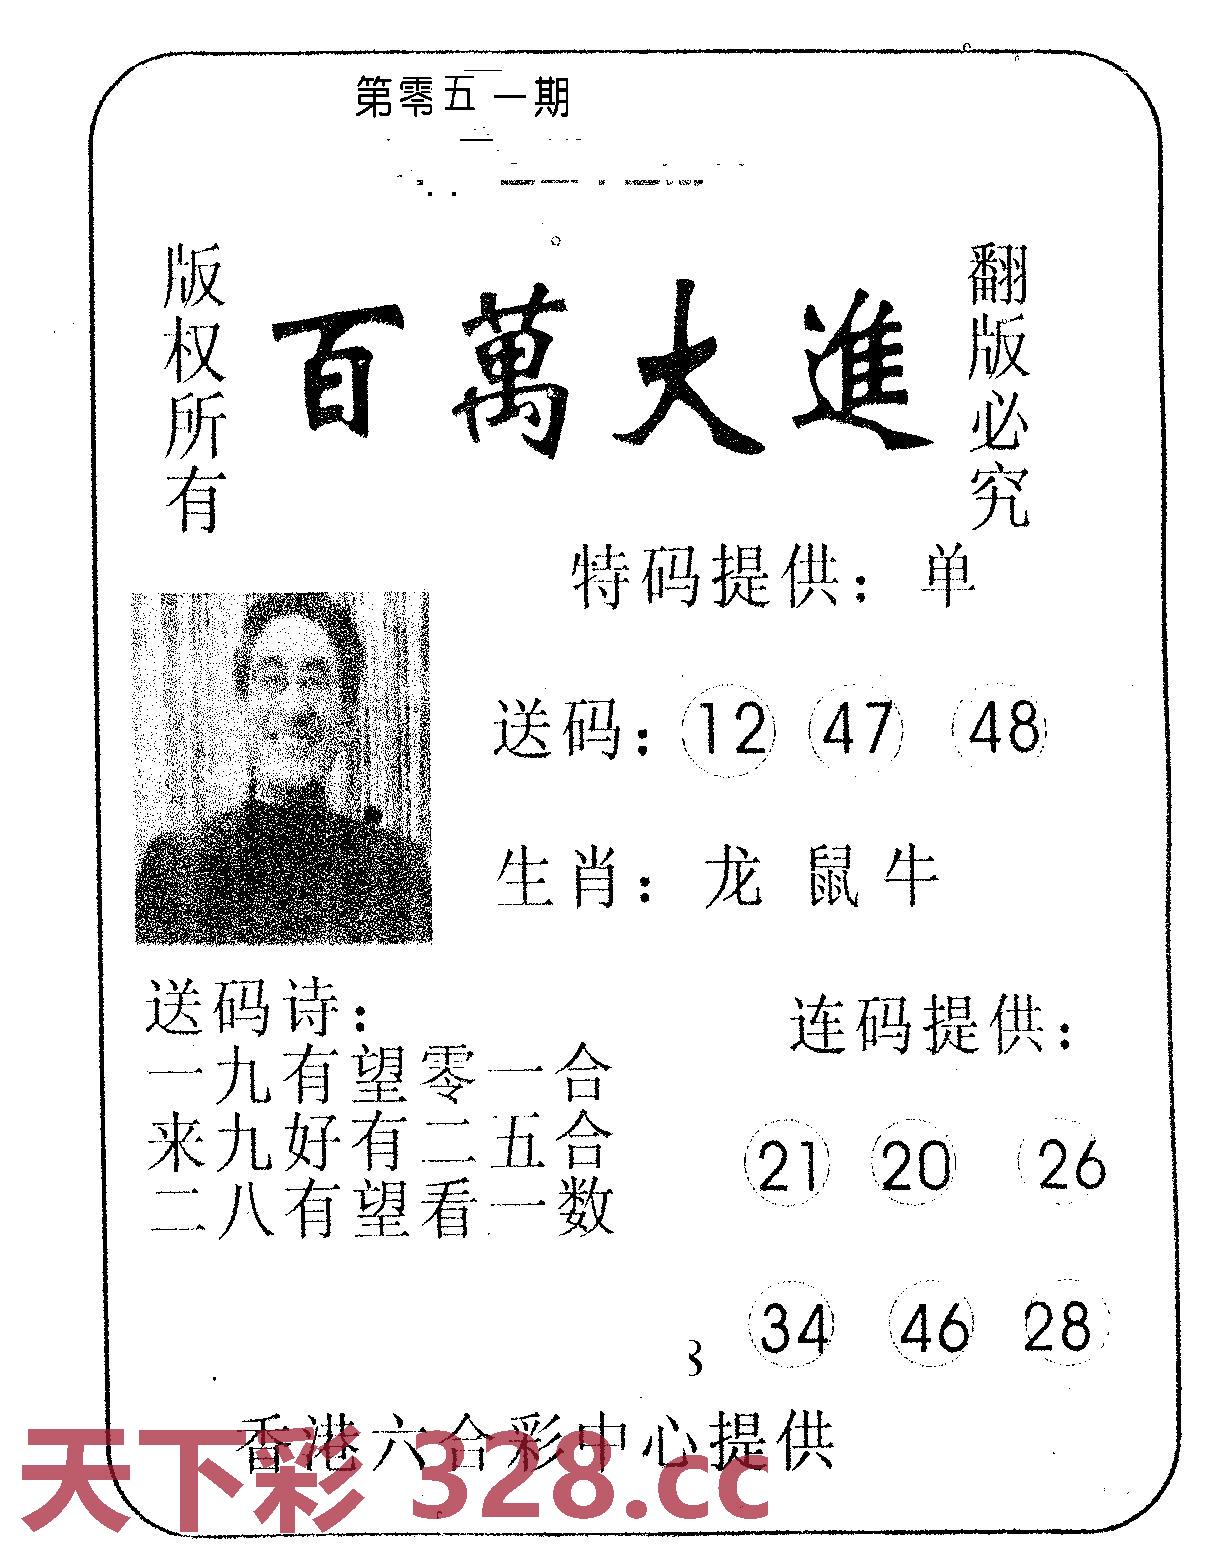 第零五一期
版权所有
百萬大進
翻版必究
特码提供：单
送码：12 47 48
生肖：龙 鼠 牛
送码诗：
一九有望零一合
来九好有二五合
二八有望看一数
连码提供：
21 20 26
34 46 28
3
香港六合彩中心提供
天下彩 328.cc